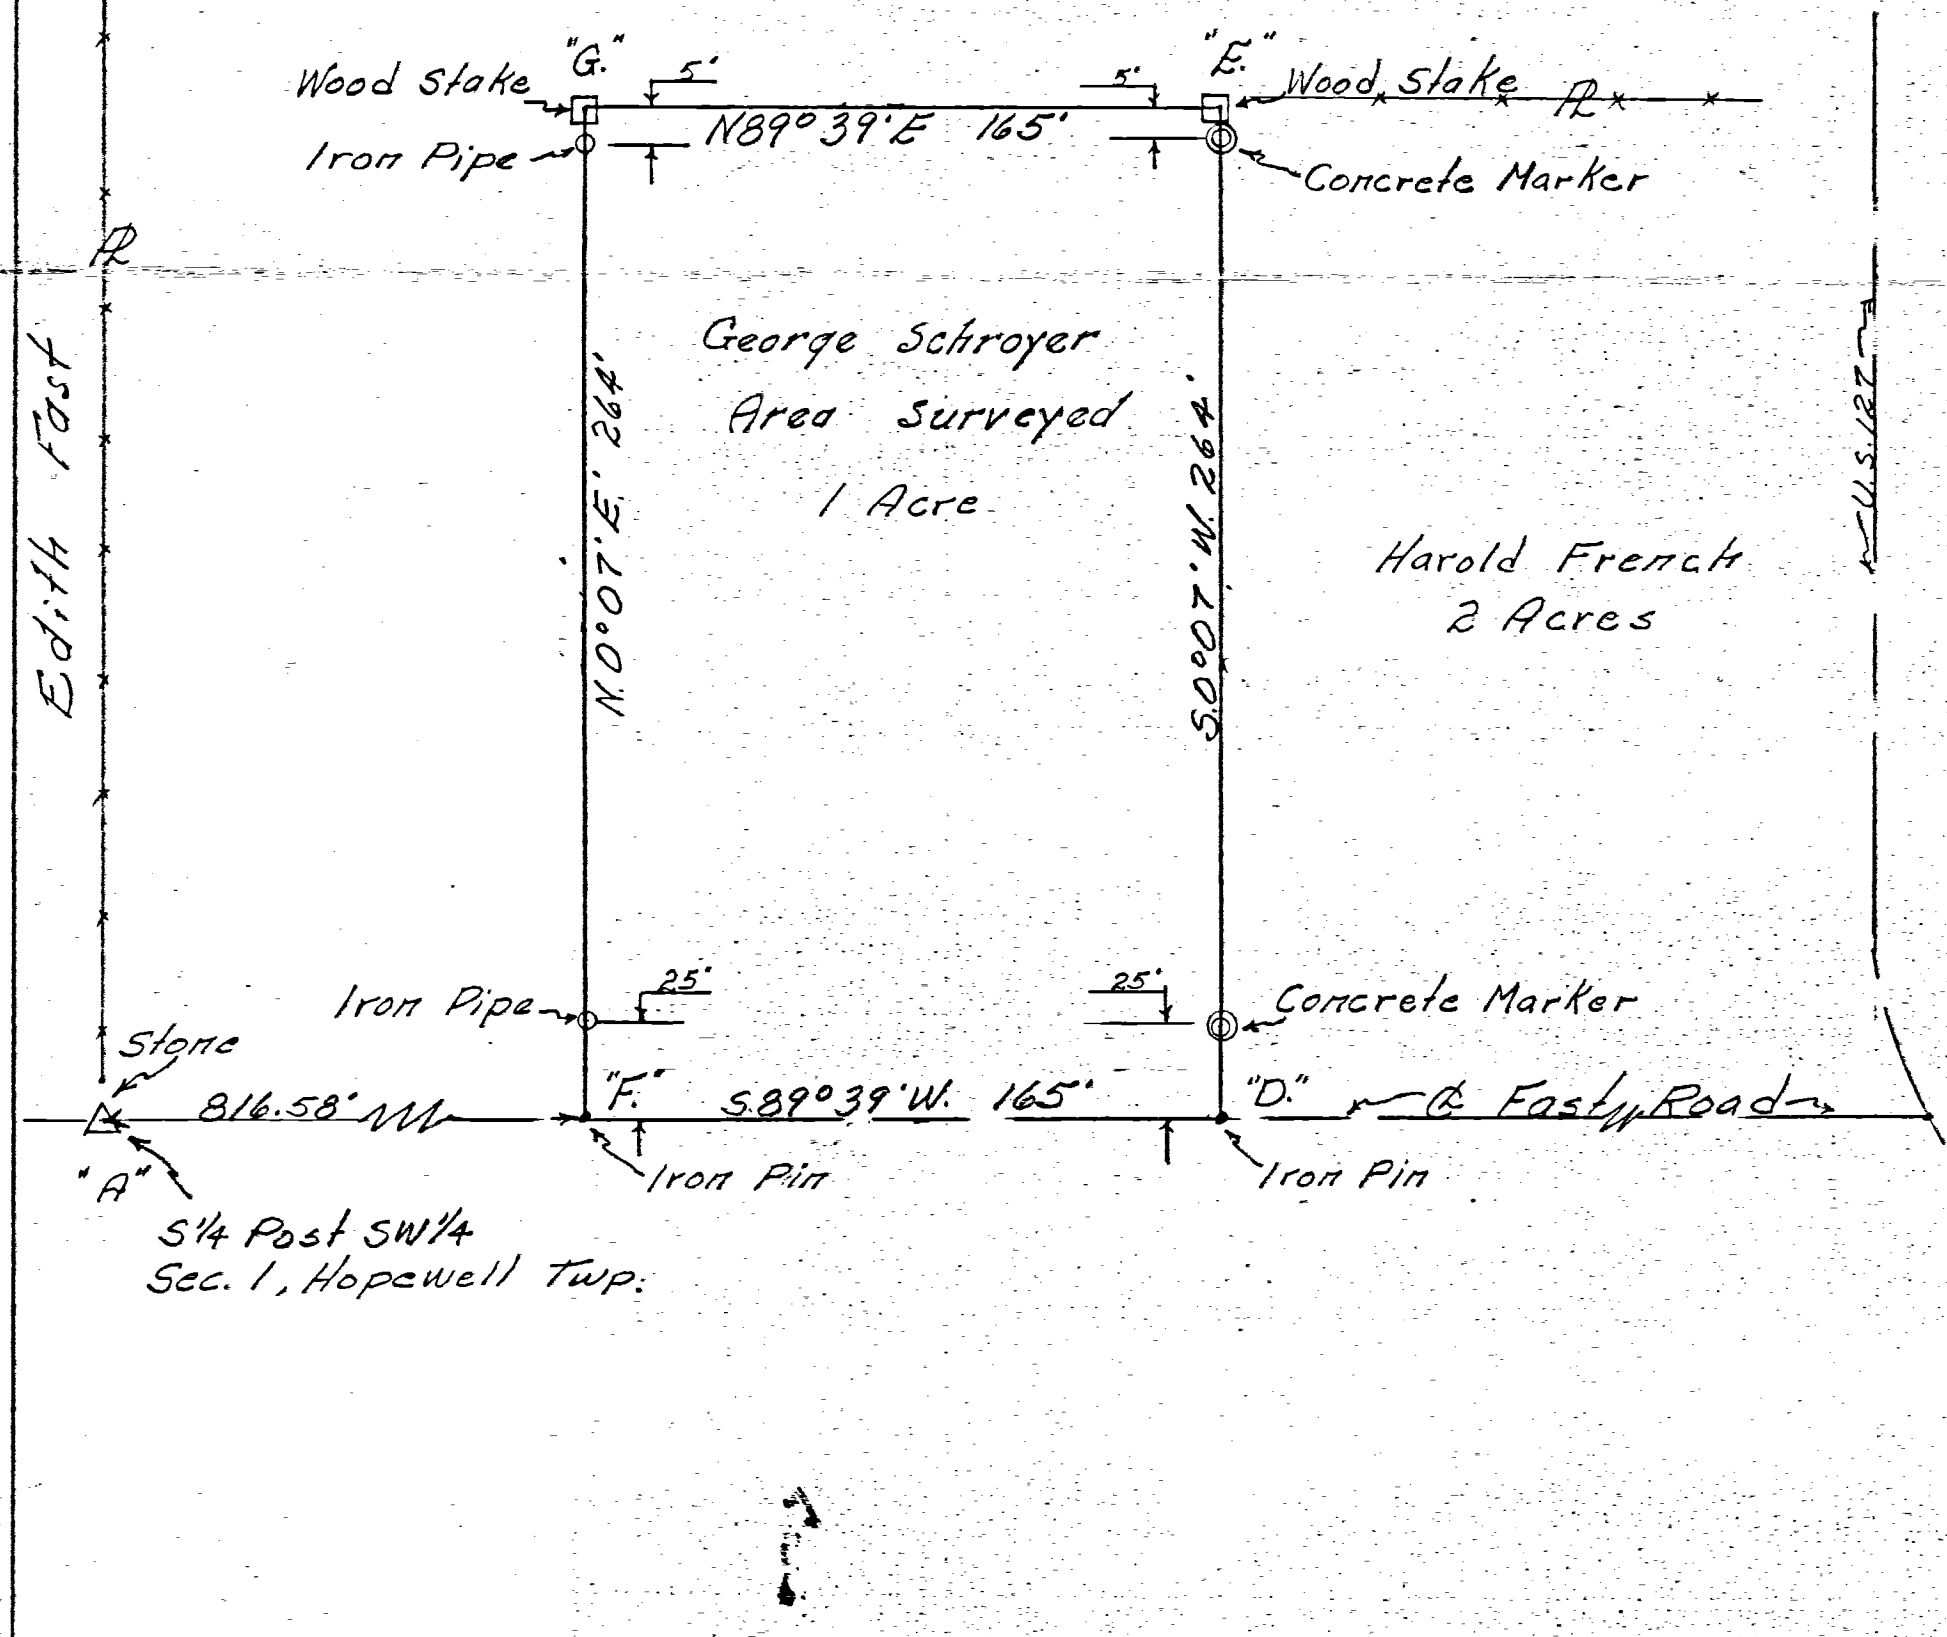 "G."
"E."
Wood Stake
5'
5'
Wood Stake
PL
N89°39'E 165'
Iron Pipe
Concrete Marker
PL
Edith Fast
George Schroyer
Area Surveyed
1 Acre
N.0°07'E. 264'
S.0°07'W. 264'
U.S. 127
Harold French
2 Acres
Iron Pipe
25'
25'
Concrete Marker
Stone
816.58'
"F."
S.89°39'W. 165'
"D."
℄ Fast Road
"A"
Iron Pin
Iron Pin
S1/4 Post SW1/4
Sec. 1, Hopewell Twp.